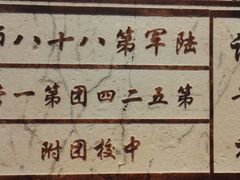 陆军第八十八师
第五二四团第一营
中校团附